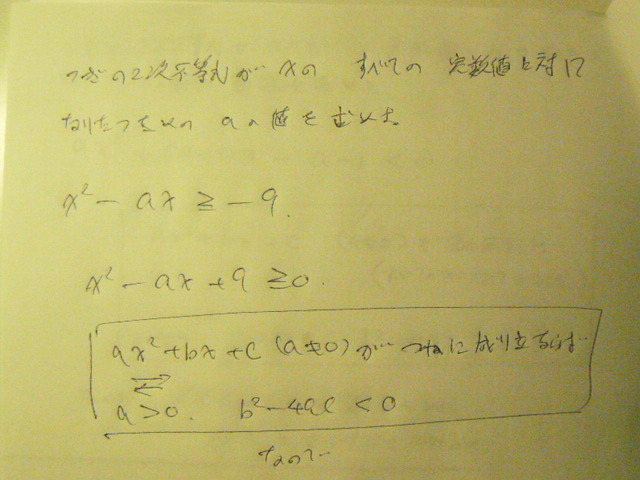 つぎの2次不等式が xの すべての 実数値に対して
なりたつための aの値を求めよ。
x² - ax ≥ -9.
x² - ax + 9 ≥ 0.
ax² + bx + c (a≠0) が つねに成り立つならば
⇄
a > 0. b² - 4ac < 0
なので